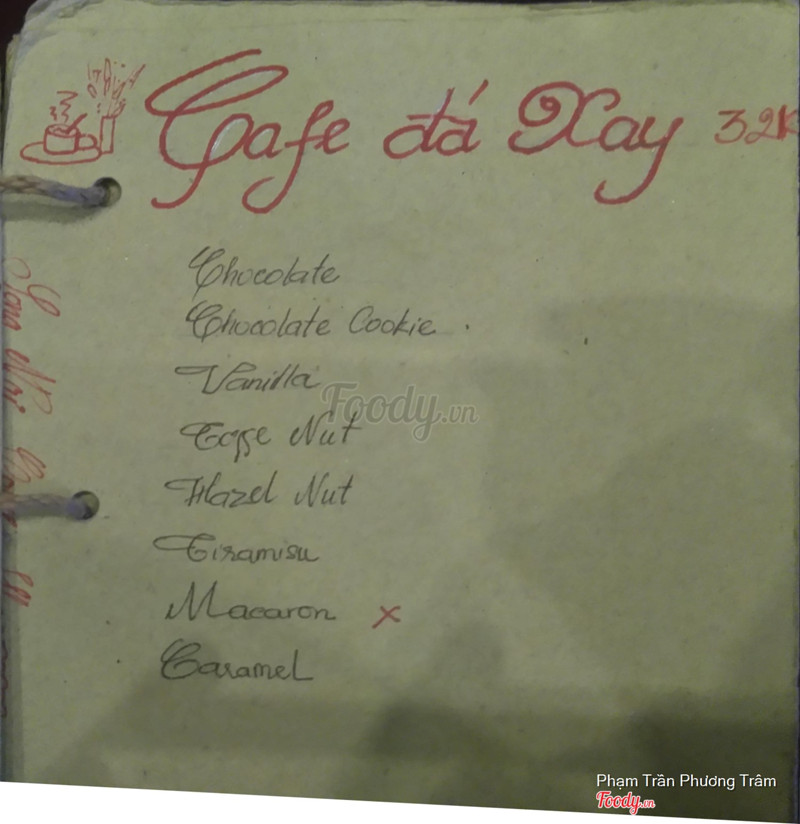 Cafe đá Xay 32K
Chocolate
Chocolate Cookie .
Vanilla
Toffe Nut
Hazel Nut
Tiramisu
Macaron x
Caramel
Foody.vn
Phạm Trần Phương Trâm
Foody.vn